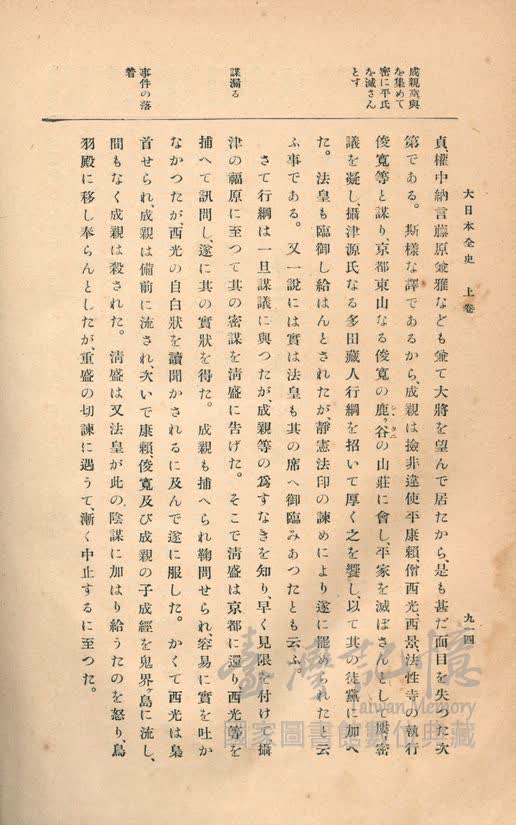 大日本全史　上卷
九一四
成親黨與
を集めて
密に平氏
を滅さん
とす
謀漏る
事件の落
着
貞、權中納言藤原兼雅なども兼て大將を望んで居たから、是も甚だ面目を失つた次
第である。　斯樣な譯であるから、成親は撿非違使平康賴僧西光、西景、法性寺の執行
俊寬等と謀り、京都東山なる俊寬の鹿ヶ谷の山莊に會し、平家を滅ぼさんとして屢〻密
議を凝し、攝津源氏なる多田藏人行綱を招いて厚く之を饗し、以て其の徒黨に加へ
た。　法皇も臨御し給はんとされたが、靜憲法印の諫めにより遂に罷られたと云
ふ事である。　又一說には實は法皇も其の席へ御臨みあつたとも云ふ。
さて行綱は一旦謀議に與つたが、成親等の爲すなきを知り、早く見限を付けて攝
津の福原に至つて其の密謀を淸盛に告げた。　そこで淸盛は京都に還り西光等を
捕へて訊問し、遂に其の實狀を得た。　成親も捕へられ鞠問せられ、容易に實を吐か
なかつたが、西光の自白狀を讀聞かされるに及んで遂に服した。　かくて西光は梟
首せられ、成親は備前に流され次いで康賴俊寬及び成親の子成經を鬼界ヶ島に流し、
間もなく成親は殺された。　淸盛は又法皇が此の陰謀に加はり給うたのを怒り、鳥
羽殿に移し奉らんとしたが、重盛の切諫に遇うて、漸く中止するに至つた。
臺灣記憶
Taiwan Memory
國家圖書館數位典藏